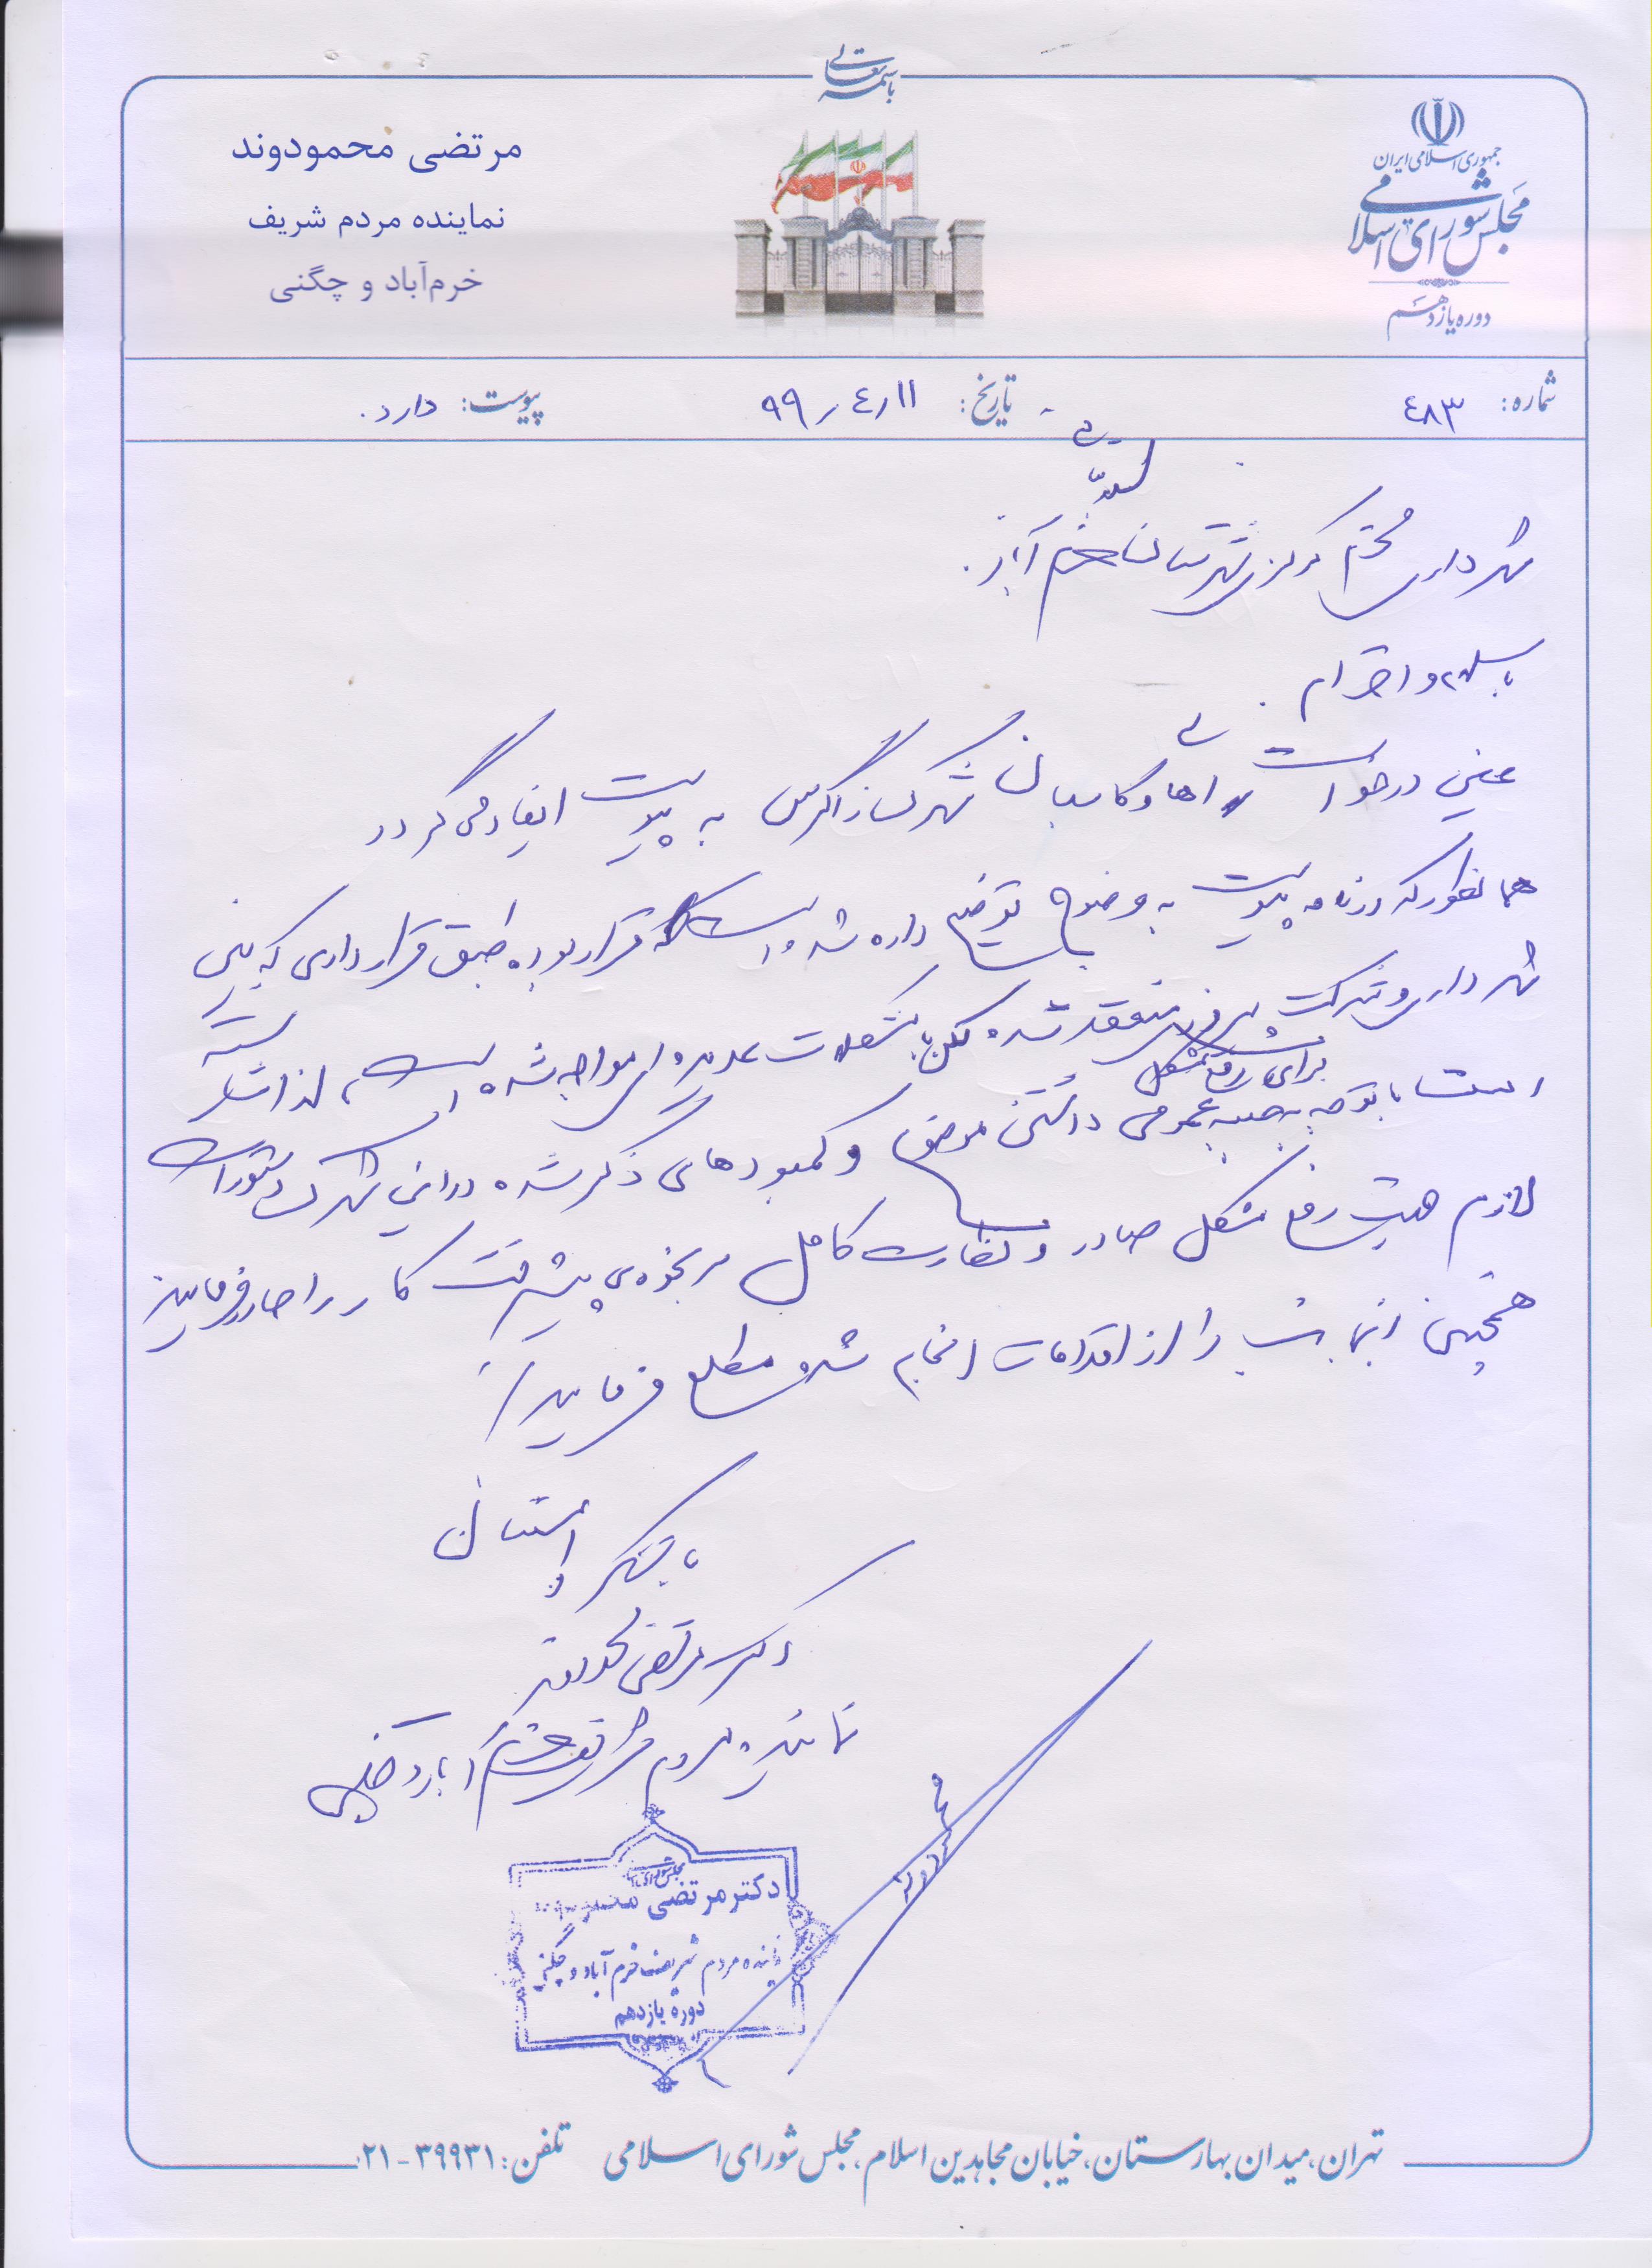 باسمه تعالی
جمهوری اسلامی ایران
مجلس شورای اسلامی
دوره یازدهم
مرتضی محمودوند
نماینده مردم شریف
خرم‌آباد و چگنی
شماره: ٤٨٣
تاریخ: ٩٩/٤/١١
پیوست: دارد.
شهرداری محترم مرکز شهرستان خرم آباد.
باسلام و احترام.
عینی درخواست اهالی و کاسبان شهرک زاگرس به پیوست ایفاد می گردد
همانطور که در نامه پیوست به وضوح توضیح داده شده است که قرار بوده طبق قراردادی که بین
شهرداری و شرکت منعقد شده برای رفع مشکل لکن با مشکلات عدیده ای مواجه شده است، لذا شایسته
است با توجه به جنبه عمومی داشتن موضوع و کمبودهای ذکر شده در این شهرک دستورات
لازم جهت رفع مشکل صادر و نظارت کامل بر نحوه ی پیشرفت کار را صادر فرمایید
همچنین اینجانب را از اقدامات انجام شده مطلع فرمایید./
با تشکر و امتنان
دکتر مرتضی محمودوند
نماینده مردم شریف خرم آباد و چگنی
محمودوند
مجلس شورای اسلامی
دکتر مرتضی محمودوند
نماینده مردم شریف خرم آباد و چگنی
دوره یازدهم
تهران، میدان بهارستان، خیابان مجاهدین اسلام، مجلس شورای اسلامی تلفن: ۳۹۹۳۱-۰۲۱